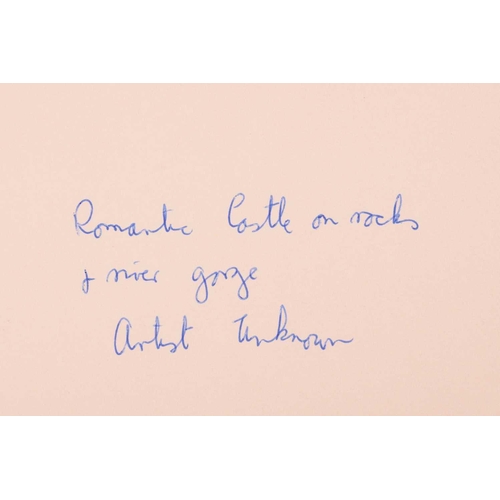 Romantic Castle on rocks
& river gorge
Artist Unknown